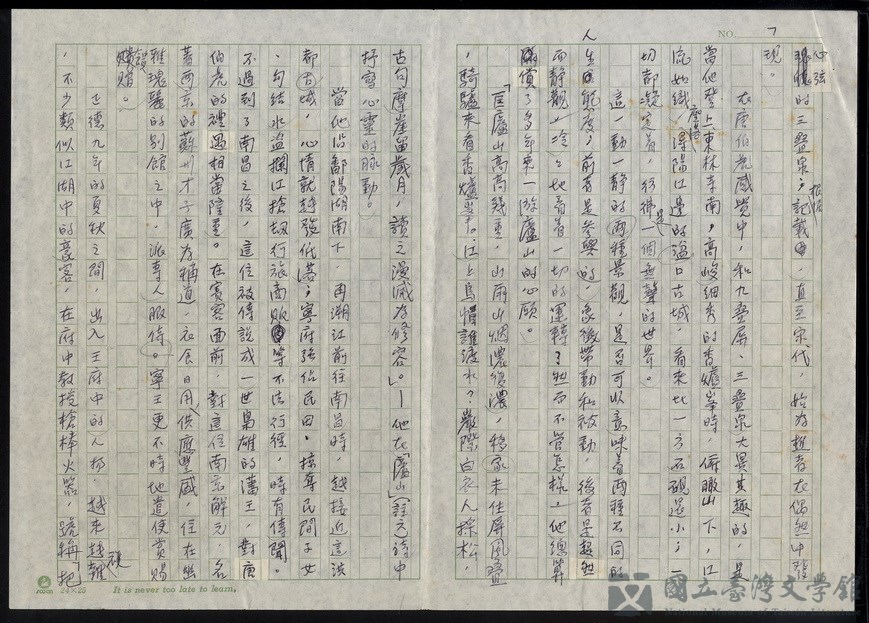 NO. 7
心弦的三疊泉；根據記載，直至宋代，始為遊者在偶然中發
現。
在唐伯虎感覺中，和九疊屏、三疊泉大異其趣的，是
當他登上東林寺南，高峻細秀的香爐峯時，俯瞰山下，江
流如織，潯陽江邊的湓口古城，看來比一方石硯還小；一
切都凝定着，彷彿是一個無聲的世界。
這一動一靜的兩種景觀，是否可以意味着兩種不同的
人生態度；前者是參與的，象徵帶動和被動，後者是超然
而靜觀，冷冷地看着一切的運轉？然而不管怎樣，他總算
償了多年來一游廬山的心願。
「匡廬山高高幾重，山雨山烟濃復濃，移家未住屏風疊
，騎驢來看香爐峯。江上烏帽誰渡水？巖際白衣人採松，
古句摩崖留歲月，讀之漫滅為修容。」—他在「廬山」（註元）詩中
抒寫心靈的脉動。
當他沿鄱陽湖南下，再溯江前往南昌時，越接近這洪
都古城，心情就越發低落；寧府強佔民田，掠奪民間子女
，勾結水盜攔江搶劫行旅商販等不法行徑，時有傳聞。
不過到了南昌之後，這位被傳說成一世梟雄的藩王，對唐
伯虎的禮遇相當隆重。在賓客面前，對這位南京解元，名
著兩京的蘇州才子廣為稱道，衣食日用，供應豐盛，住在幽
雅瑰麗的別館之中，派專人服侍。寧王更不時地遣使賞賜
餽贈。
正德九年的夏秋之間，出入王府中的人物，越來越雜
，不少類似江湖中的豪客，在府中教授槍棒火器，號稱「把
24×25
It is never too late to learn.
國立臺灣文學館